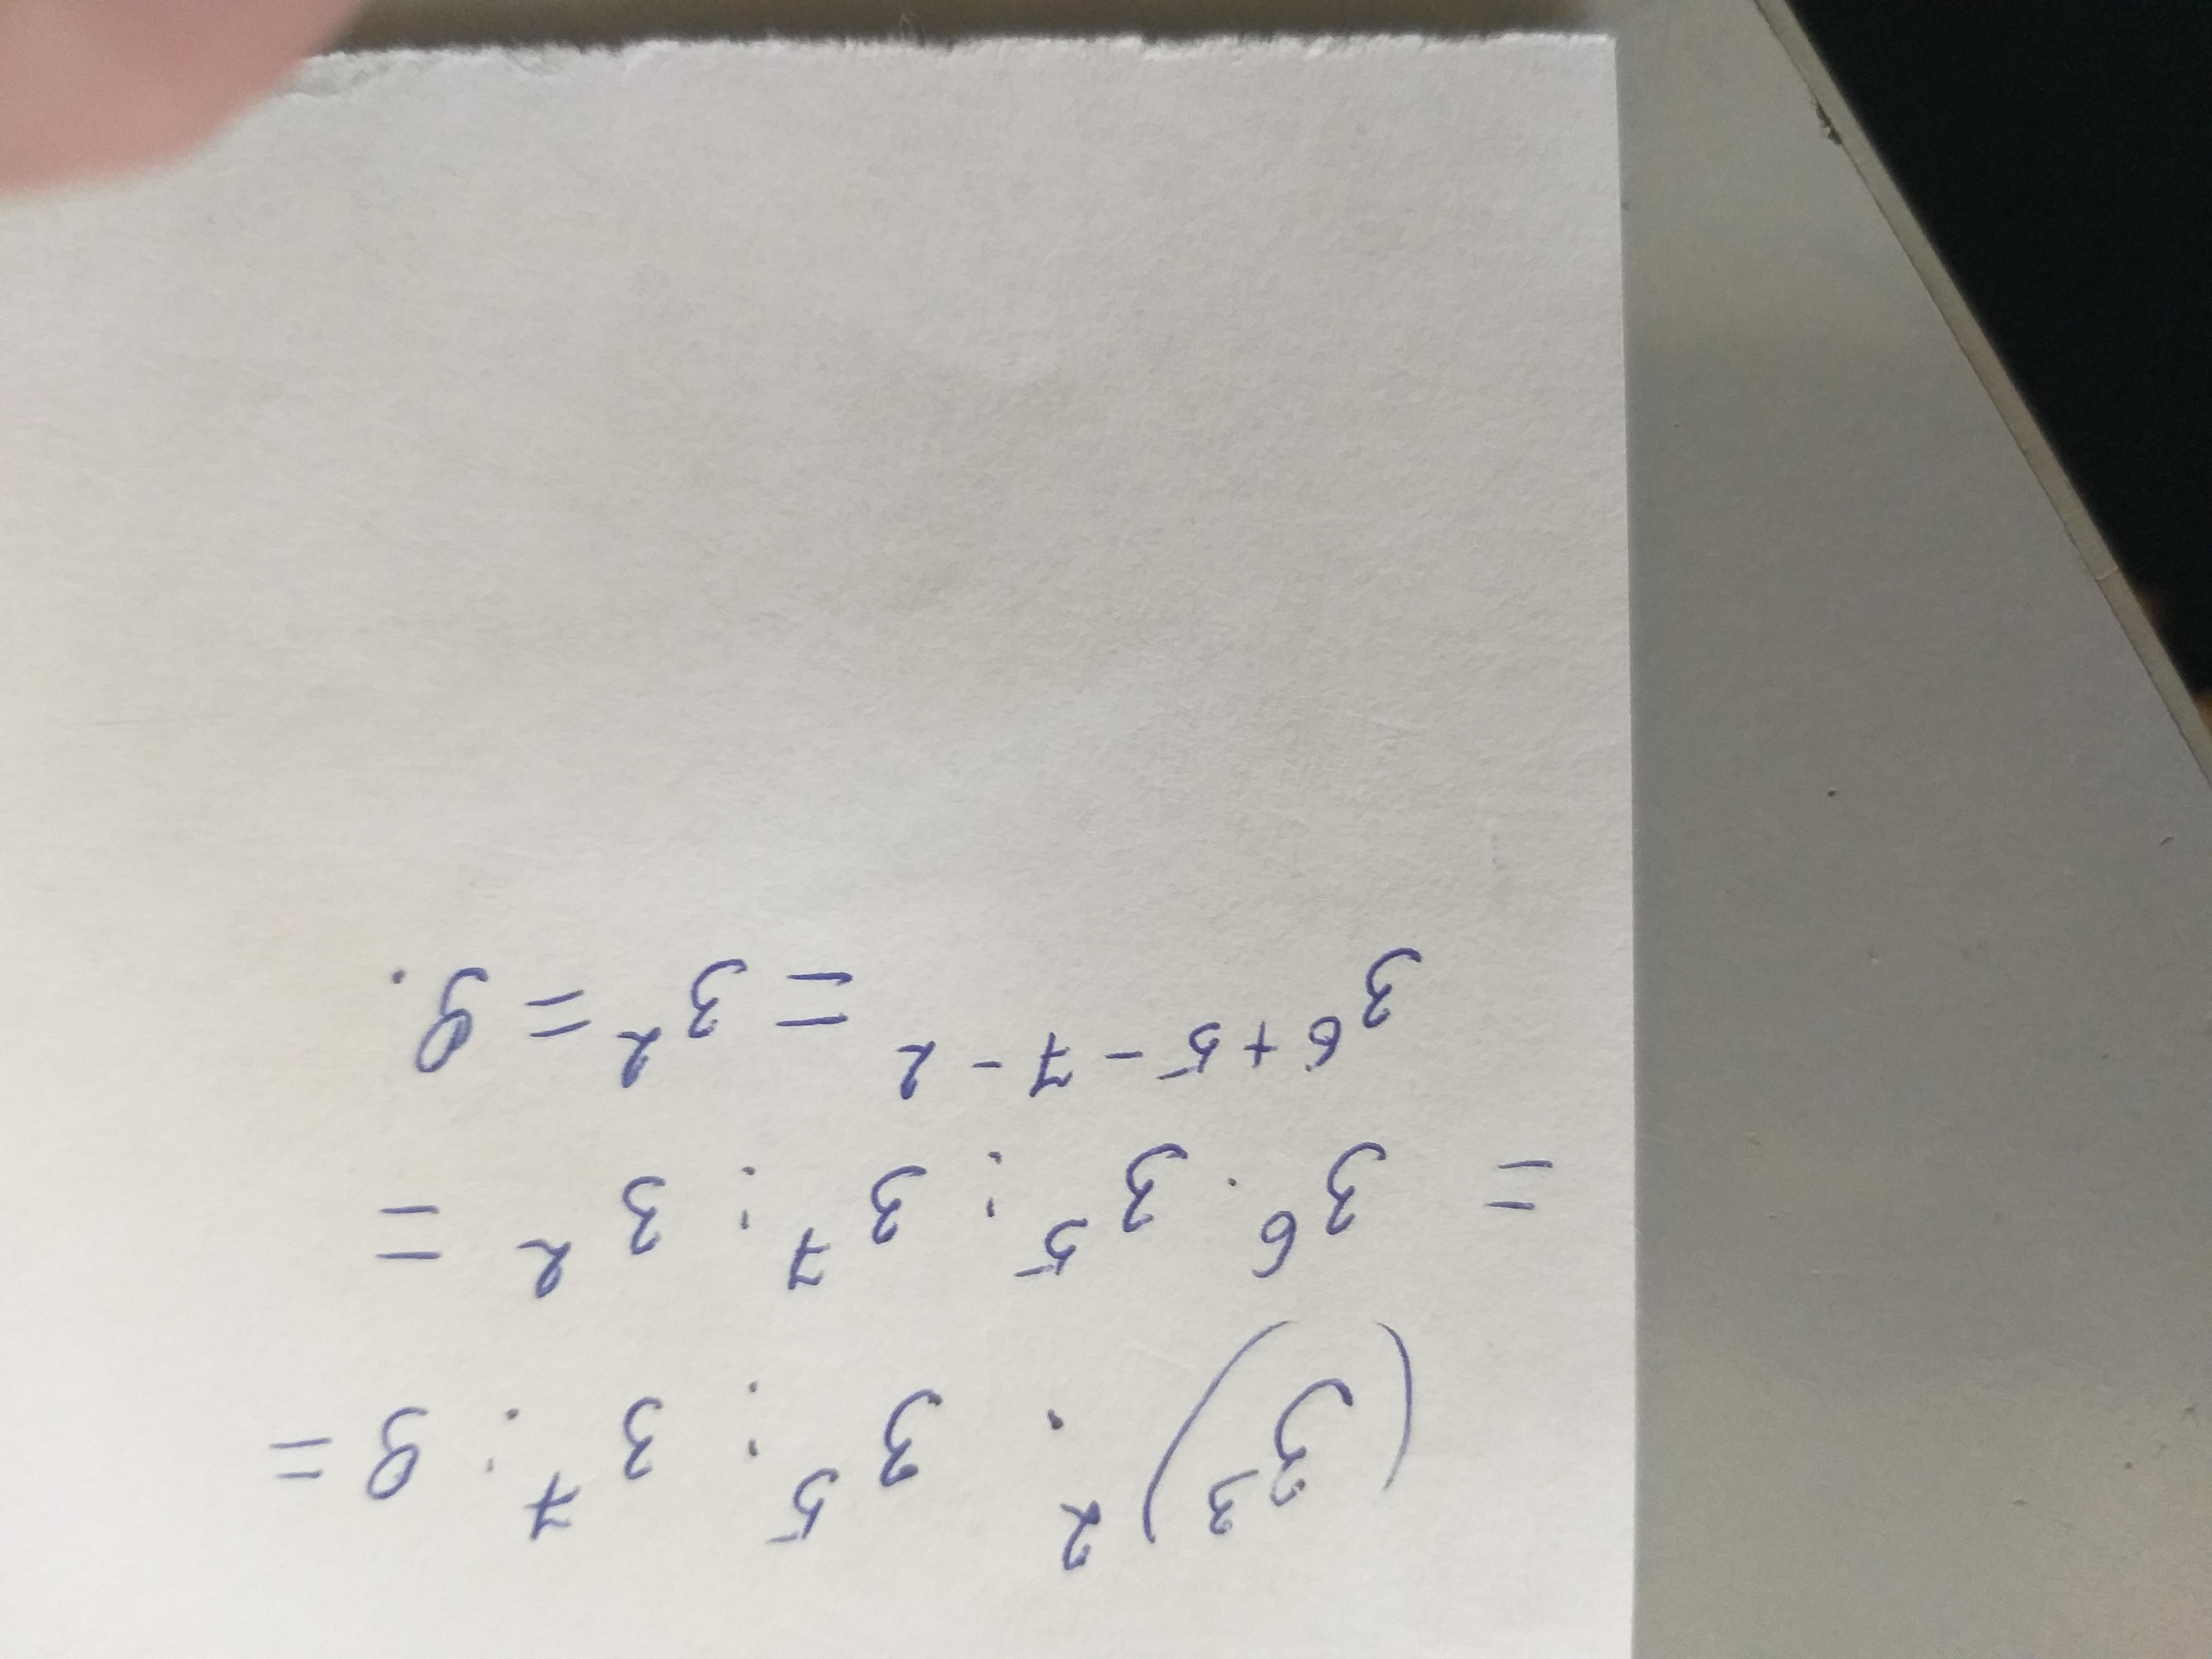 (3³)² · 3⁵ : 3⁷ : 9 =
= 3⁶ · 3⁵ : 3⁷ : 3² =
3⁶⁺⁵⁻⁷⁻² = 3² = 9.